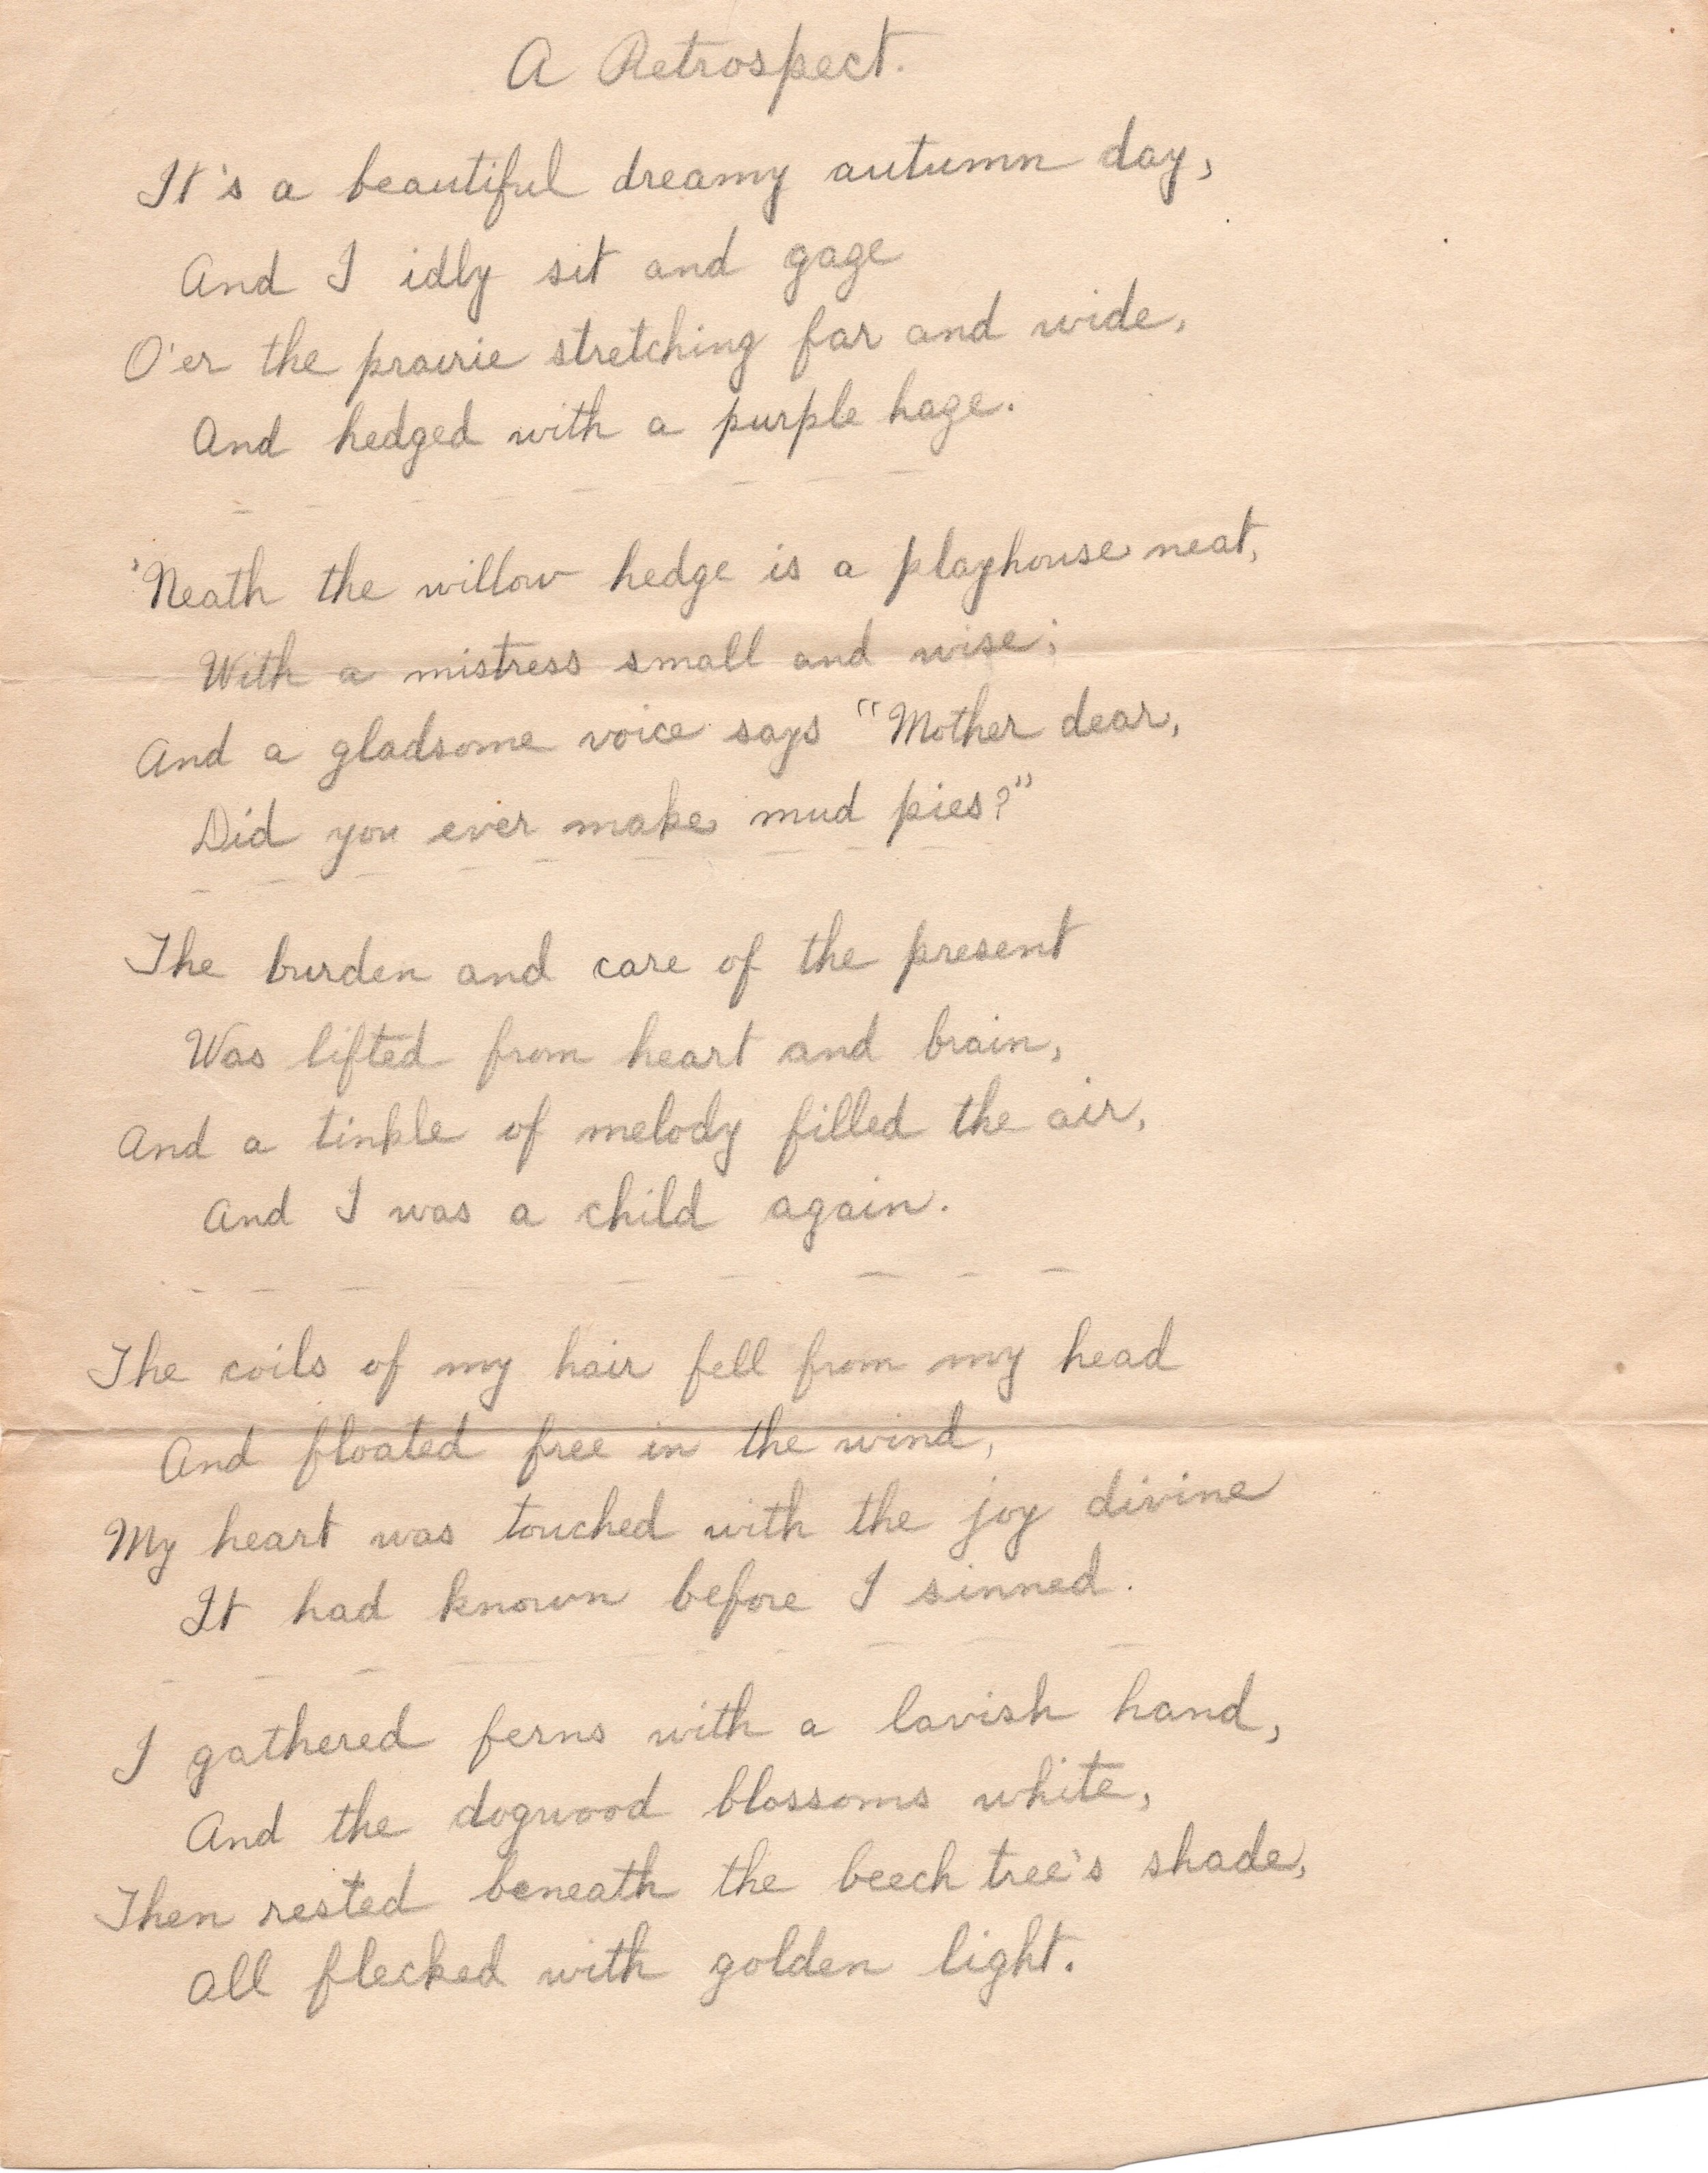 A Retrospect.
It's a beautiful dreamy autumn day,
And I idly sit and gaze
O'er the prairie stretching far and wide,
And hedged with a purple haze.
'Neath the willow hedge is a playhouse neat,
With a mistress small and wise;
And a gladsome voice says "Mother dear,
Did you ever make mud pies?"
The burden and care of the present
Was lifted from heart and brain,
And a tinkle of melody filled the air,
And I was a child again.
The coils of my hair fell from my head
And floated free in the wind,
My heart was touched with the joy divine
It had known before I sinned.
I gathered ferns with a lavish hand,
And the dogwood blossoms white,
Then rested beneath the beech tree's shade,
All flecked with golden light.